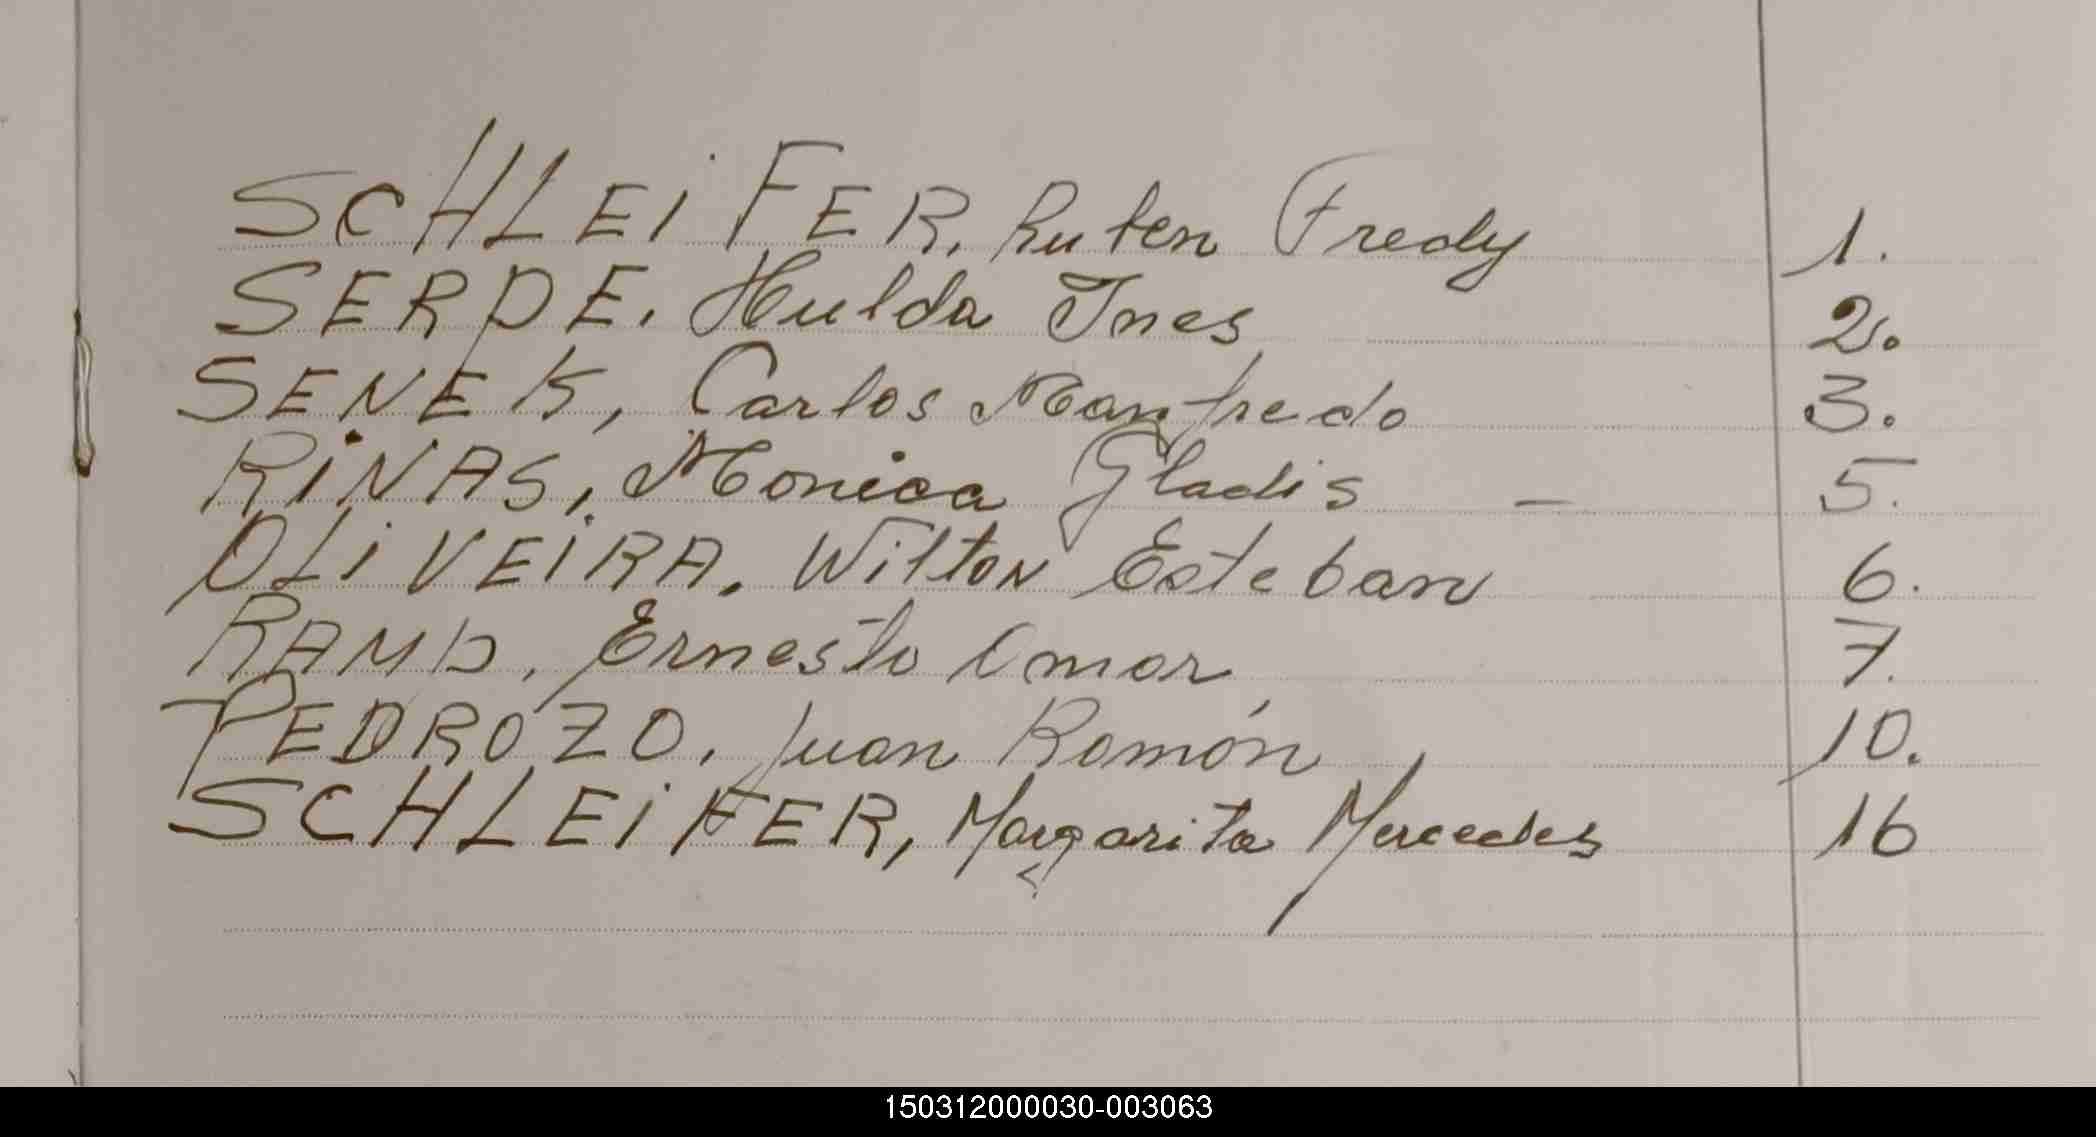 SCHLEiFER, Ruben Fredy 1.
SERDE. Hulda Ines 2.
SENEK, Carlos Manfredo 3.
RiNAS, Monica Gladis — 5.
OLiVEiRA. Wilton Esteban 6.
RAMB, Ernesto Omar 7.
PEDROZO. Juan Ramón 10.
SCHLEiFER, Margarita Mercedes 16
150312000030-003063